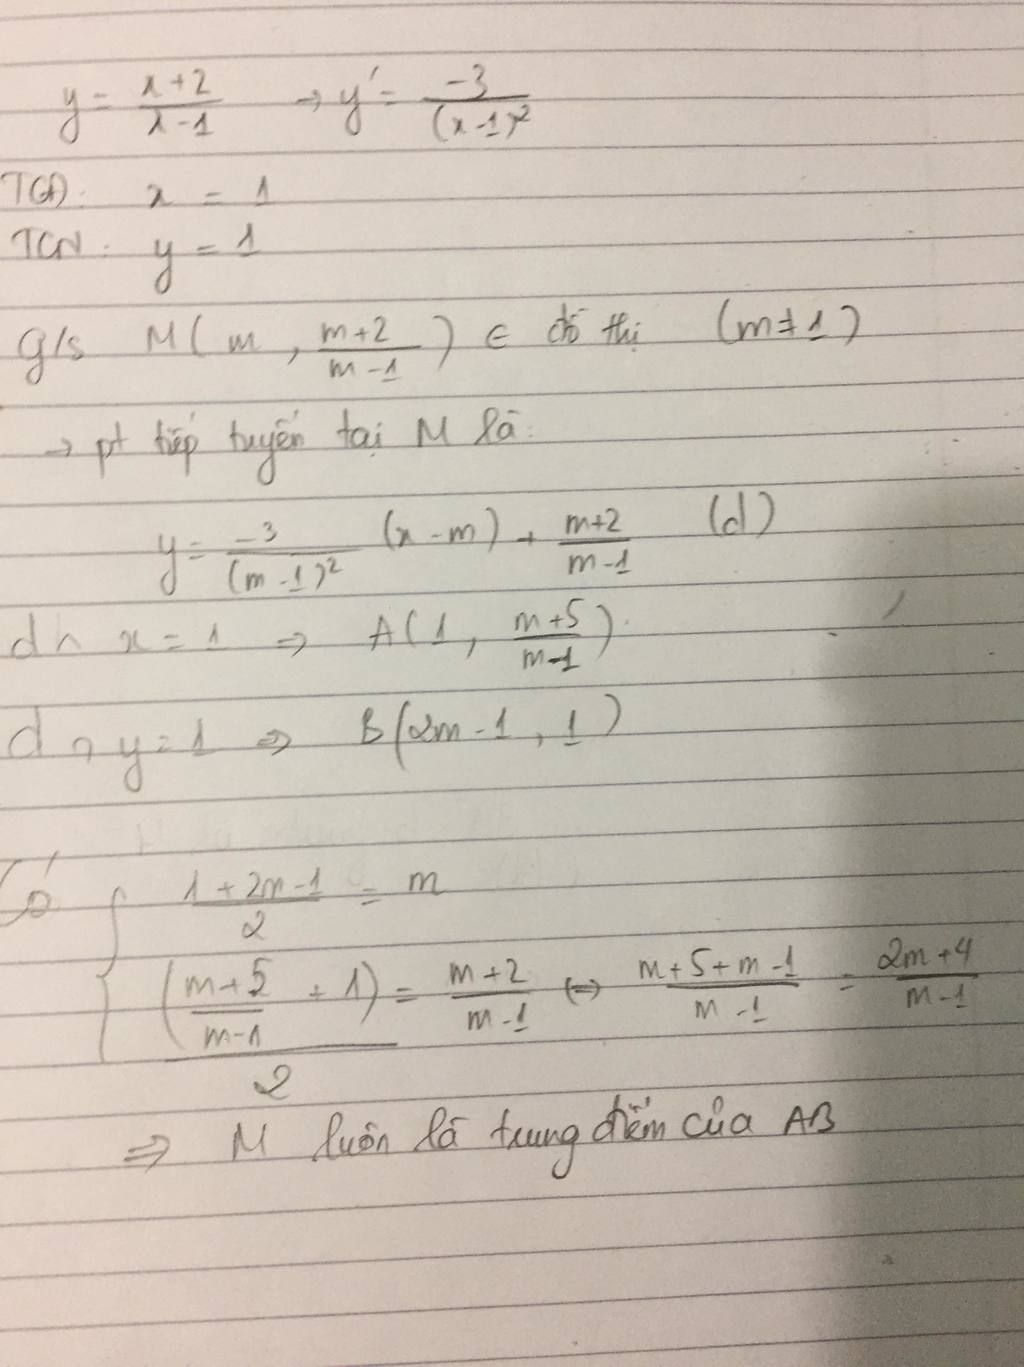 y = \frac{x+2}{x-1} → y' = \frac{-3}{(x-1)^2}
TCĐ: x = 1
TCN: y = 1
g/s M(m, \frac{m+2}{m-1}) ∈ đồ thị (m ≠ 1)
→ pt tiếp tuyến tại M là:
y = \frac{-3}{(m-1)^2} (x-m) + \frac{m+2}{m-1} (d)
d ∩ x = 1 ⇒ A(1, \frac{m+5}{m-1})
d ∩ y = 1 ⇒ B(2m-1, 1)
Có { \frac{1+2m-1}{2} = m
\frac{(\frac{m+5}{m-1} + 1)}{2} = \frac{m+2}{m-1} ⇔ \frac{m+5+m-1}{m-1} = \frac{2m+4}{m-1}
⇒ M luôn là trung điểm của AB